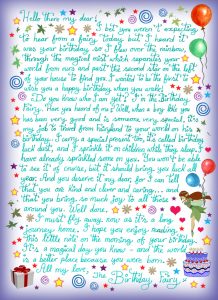 Hello there my dear!
I bet you weren't expecting
to hear from a fairy today, but I heard it
was your birthday, so I flew over the rainbow,
through the magical mist which separates your
world from ours and past the second star on the left
of your house to find you. I wanted to be the first to
wish you a happy birthday when you woke!
Do you know who I am yet? I'm the Birthday
Fairy. Have you heard of me? Well, when a boy like you
has been very good and is someone very special, it's
my job to travel from Fairyland to your world on his
birthday. I carry a special present too, it's called birthday
luck dust, and I sprinkle it on children while they sleep. I
have already sprinkled some on you. You won't be able
to see it of course, but it should bring you luck all
year. And you deserve it my dear, for I can tell
that you are kind and clever and caring... and
that you bring so much joy to all those
around you. Well done.
I must fly away now as it's a long
journey home. I hope you enjoy reading
this little note on the morning of your birthday.
It's a magical day you know - and the world
is a better place because you were born.
All my love,
The Birthday Fairy